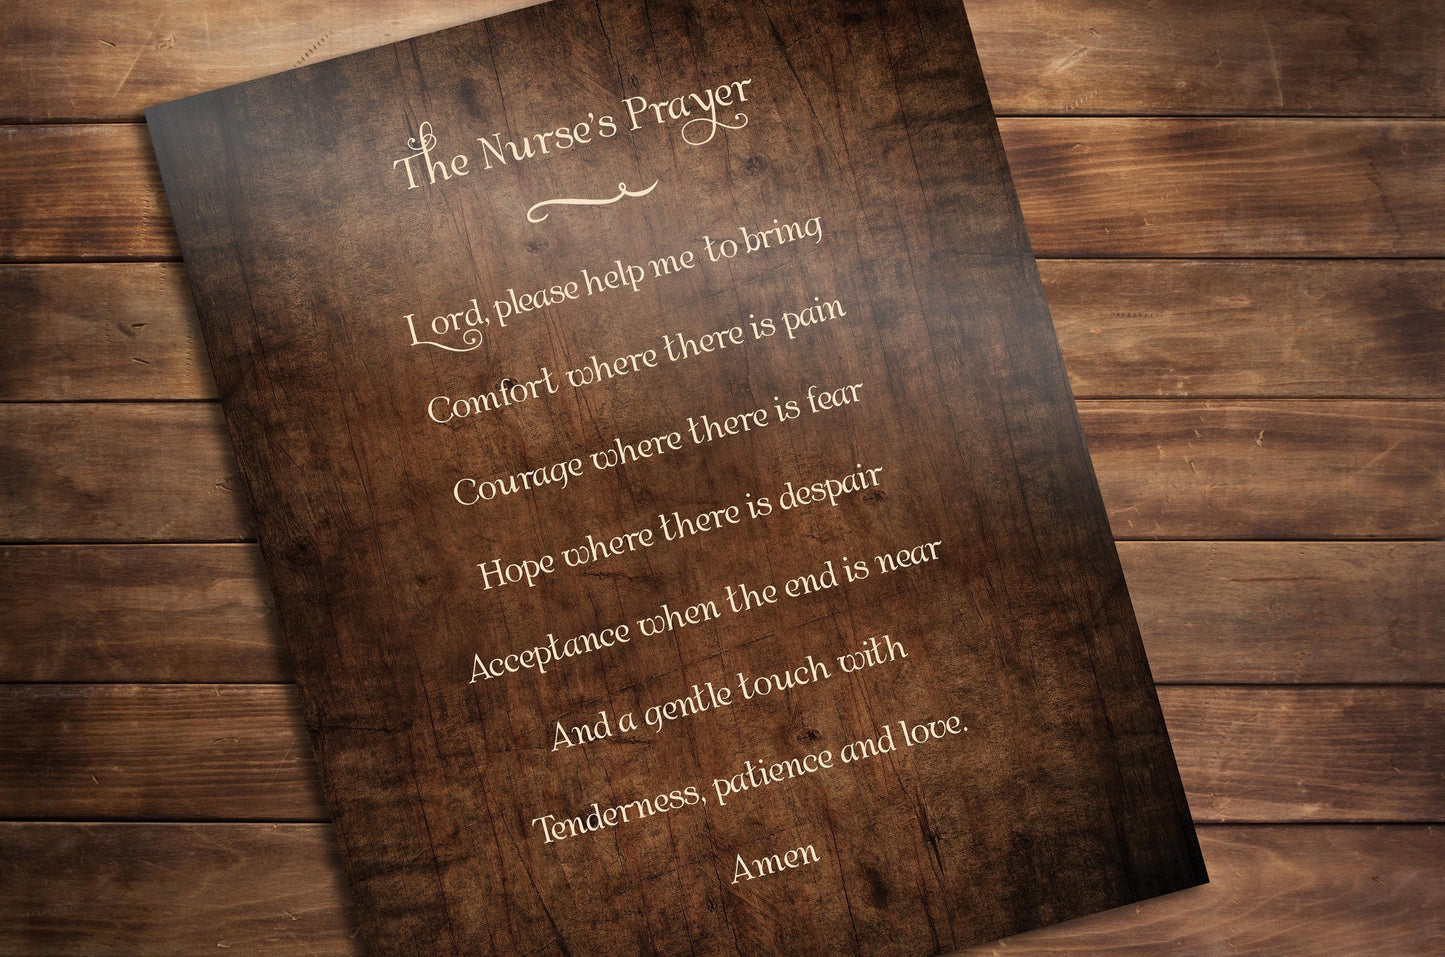 The Nurse's Prayer
Lord, please help me to bring
Comfort where there is pain
Courage where there is fear
Hope where there is despair
Acceptance when the end is near
And a gentle touch with
Tenderness, patience and love.
Amen